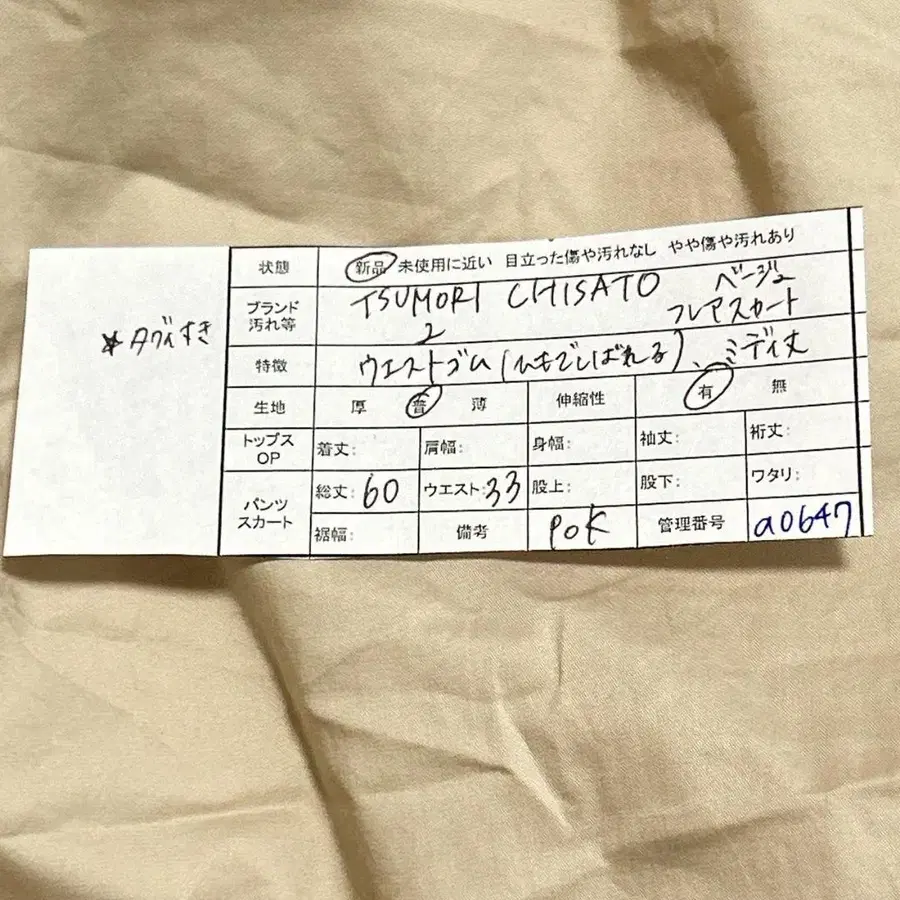 * タグ付き
状態 新品 未使用に近い 目立った傷や汚れなし やや傷や汚れあり
ブランド 汚れ等 TSUMORI CHISATO ベージュ
2 フレアスカート
特徴 ウエストゴム(ひもでしばれる)、ミディ丈
生地 厚 普 薄 伸縮性 有 無
トップス OP 着丈: 肩幅: 身幅: 袖丈: 裄丈:
パンツ スカート 総丈: 60 ウエスト: 33 股上: 股下: ワタリ:
裾幅: 備考 PoK 管理番号 a0647